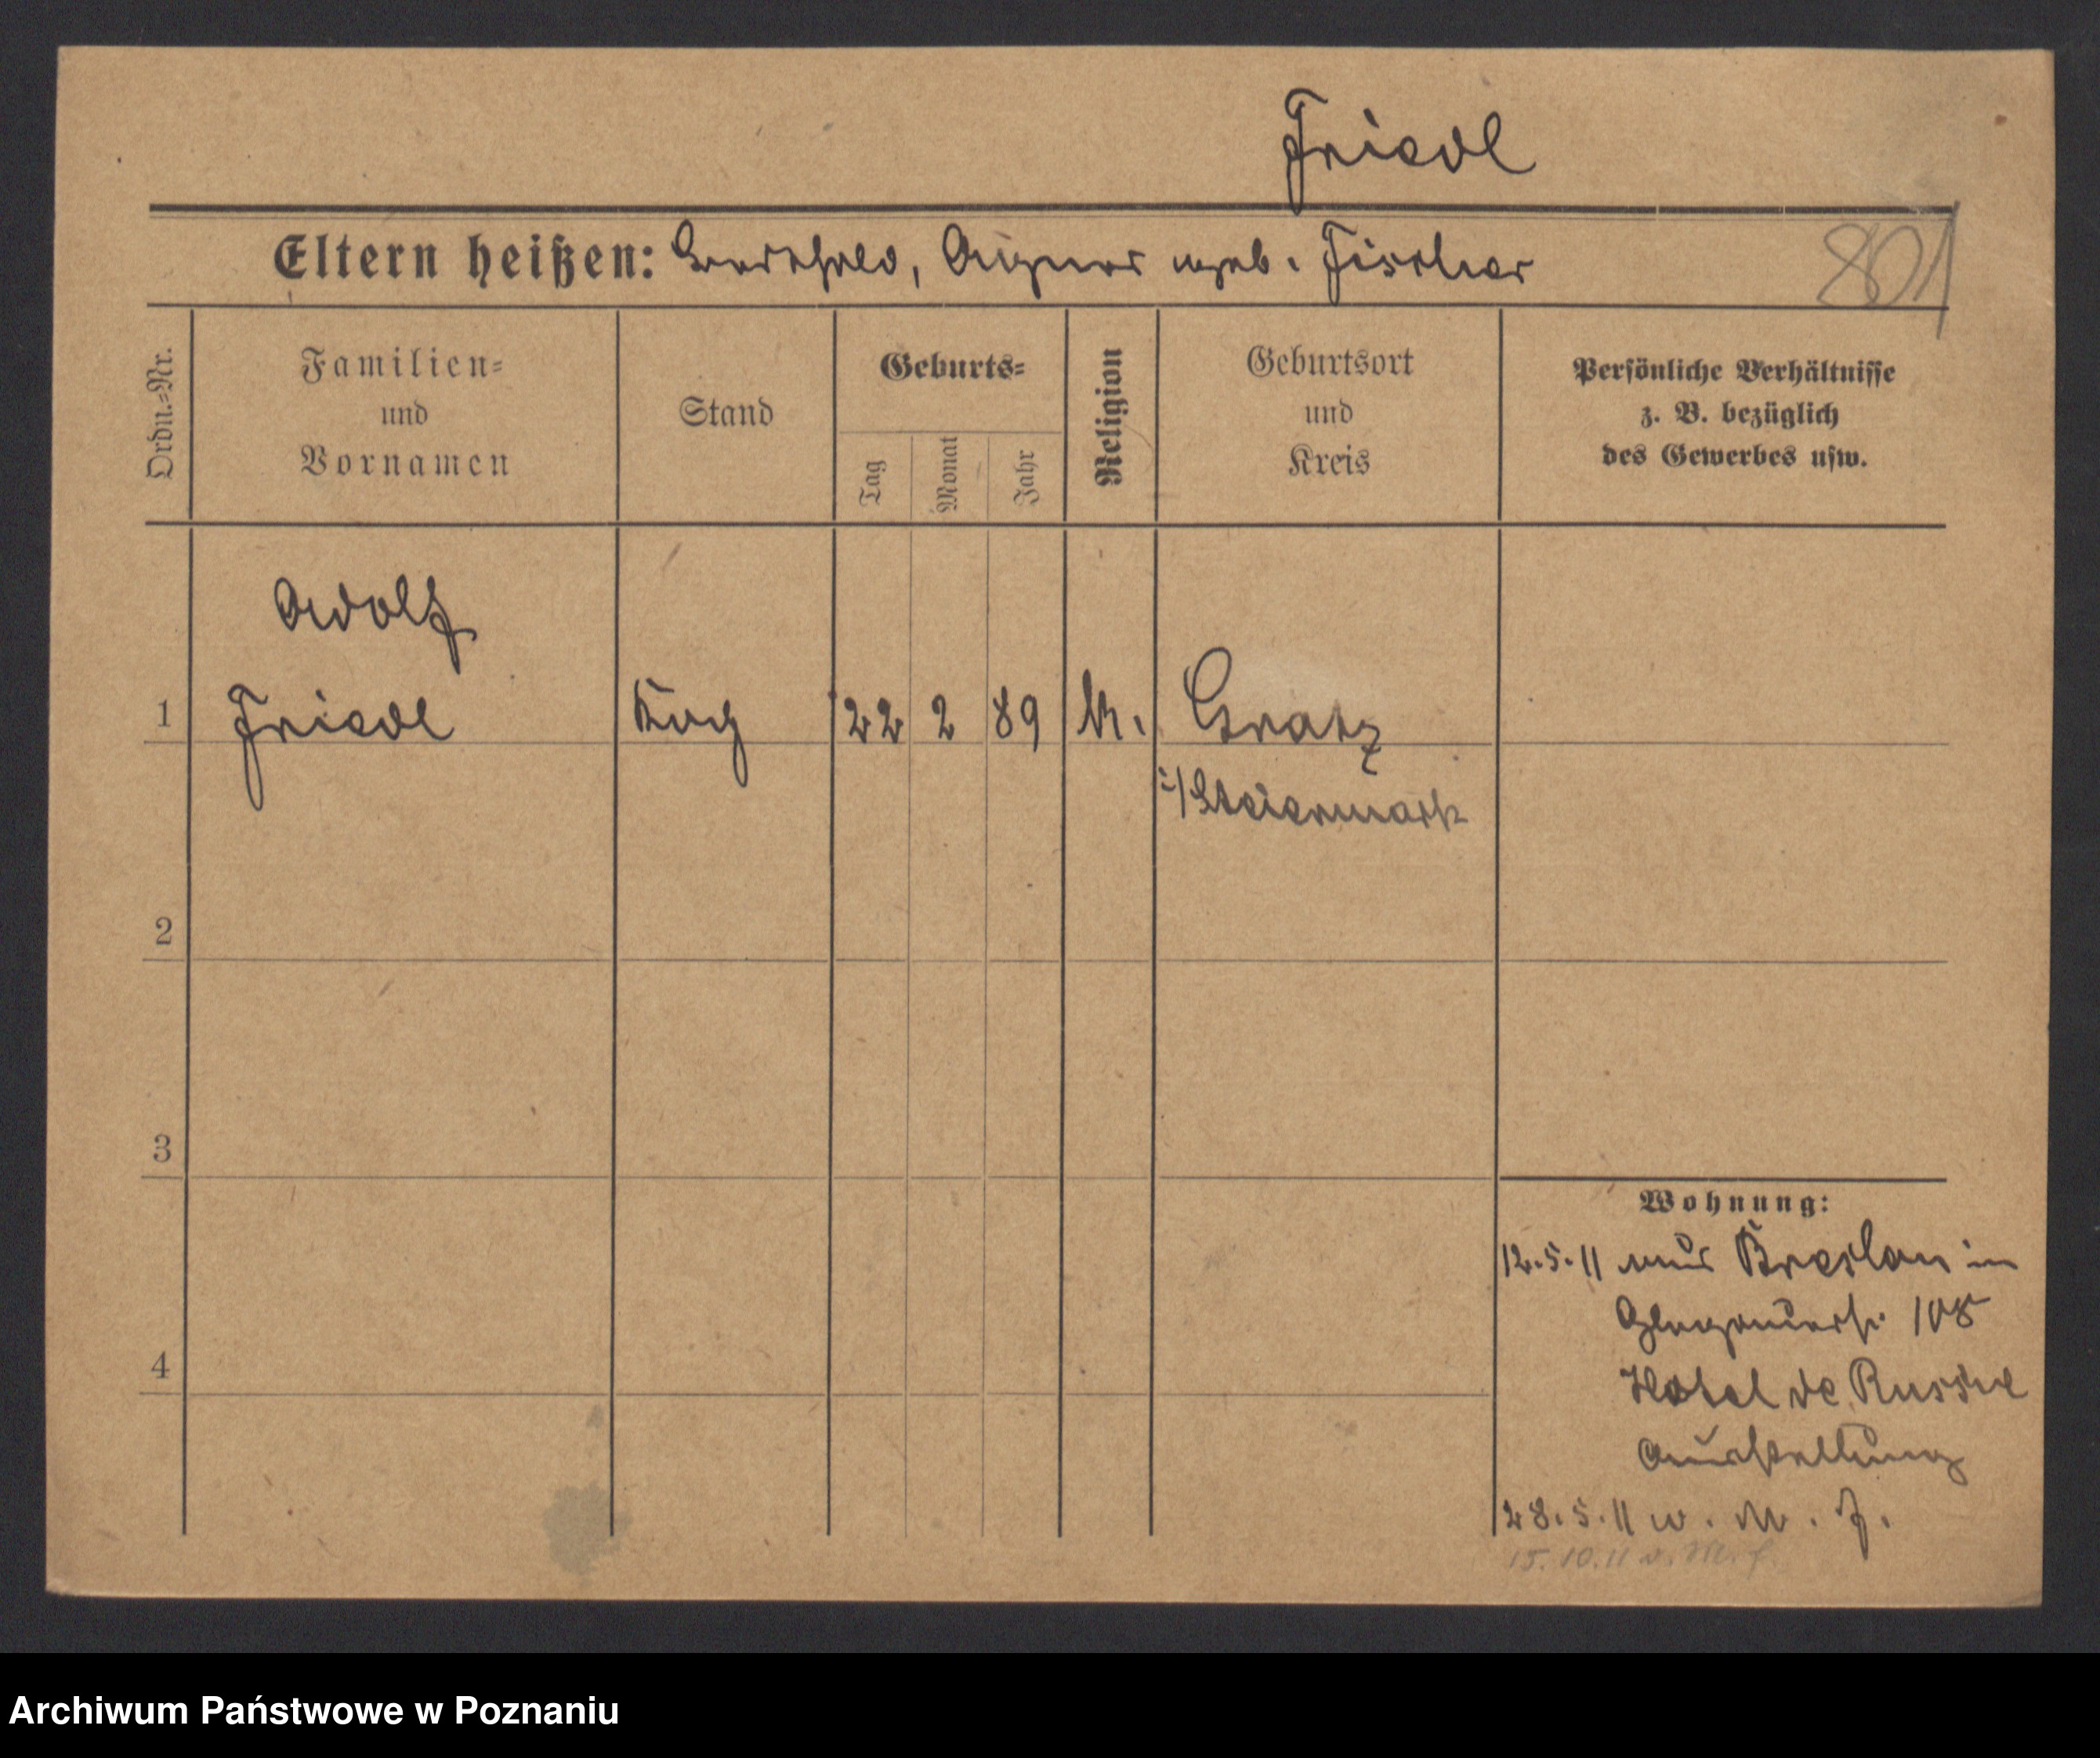 Friedl
Eltern heißen: Berthold, Agnes geb. Fischer
801
Ordn.-Nr.
Familien-
und
Vornamen
Stand
Geburts-
Tag
Monat
Jahr
Religion
Geburtsort
und
Kreis
Persönliche Verhältnisse
z. B. bezüglich
des Gewerbes usw.
Adolf
1 Friedl Koch 22 2 89 k. Gratz
i/Steiermark
2
3
4
Wohnung:
12.5.11 aus Breslau in
Glogauerstr. 108
Hotel de Russie
Ausstellung
28.5.11 w.
15.10.11
Archiwum Państwowe w Poznaniu